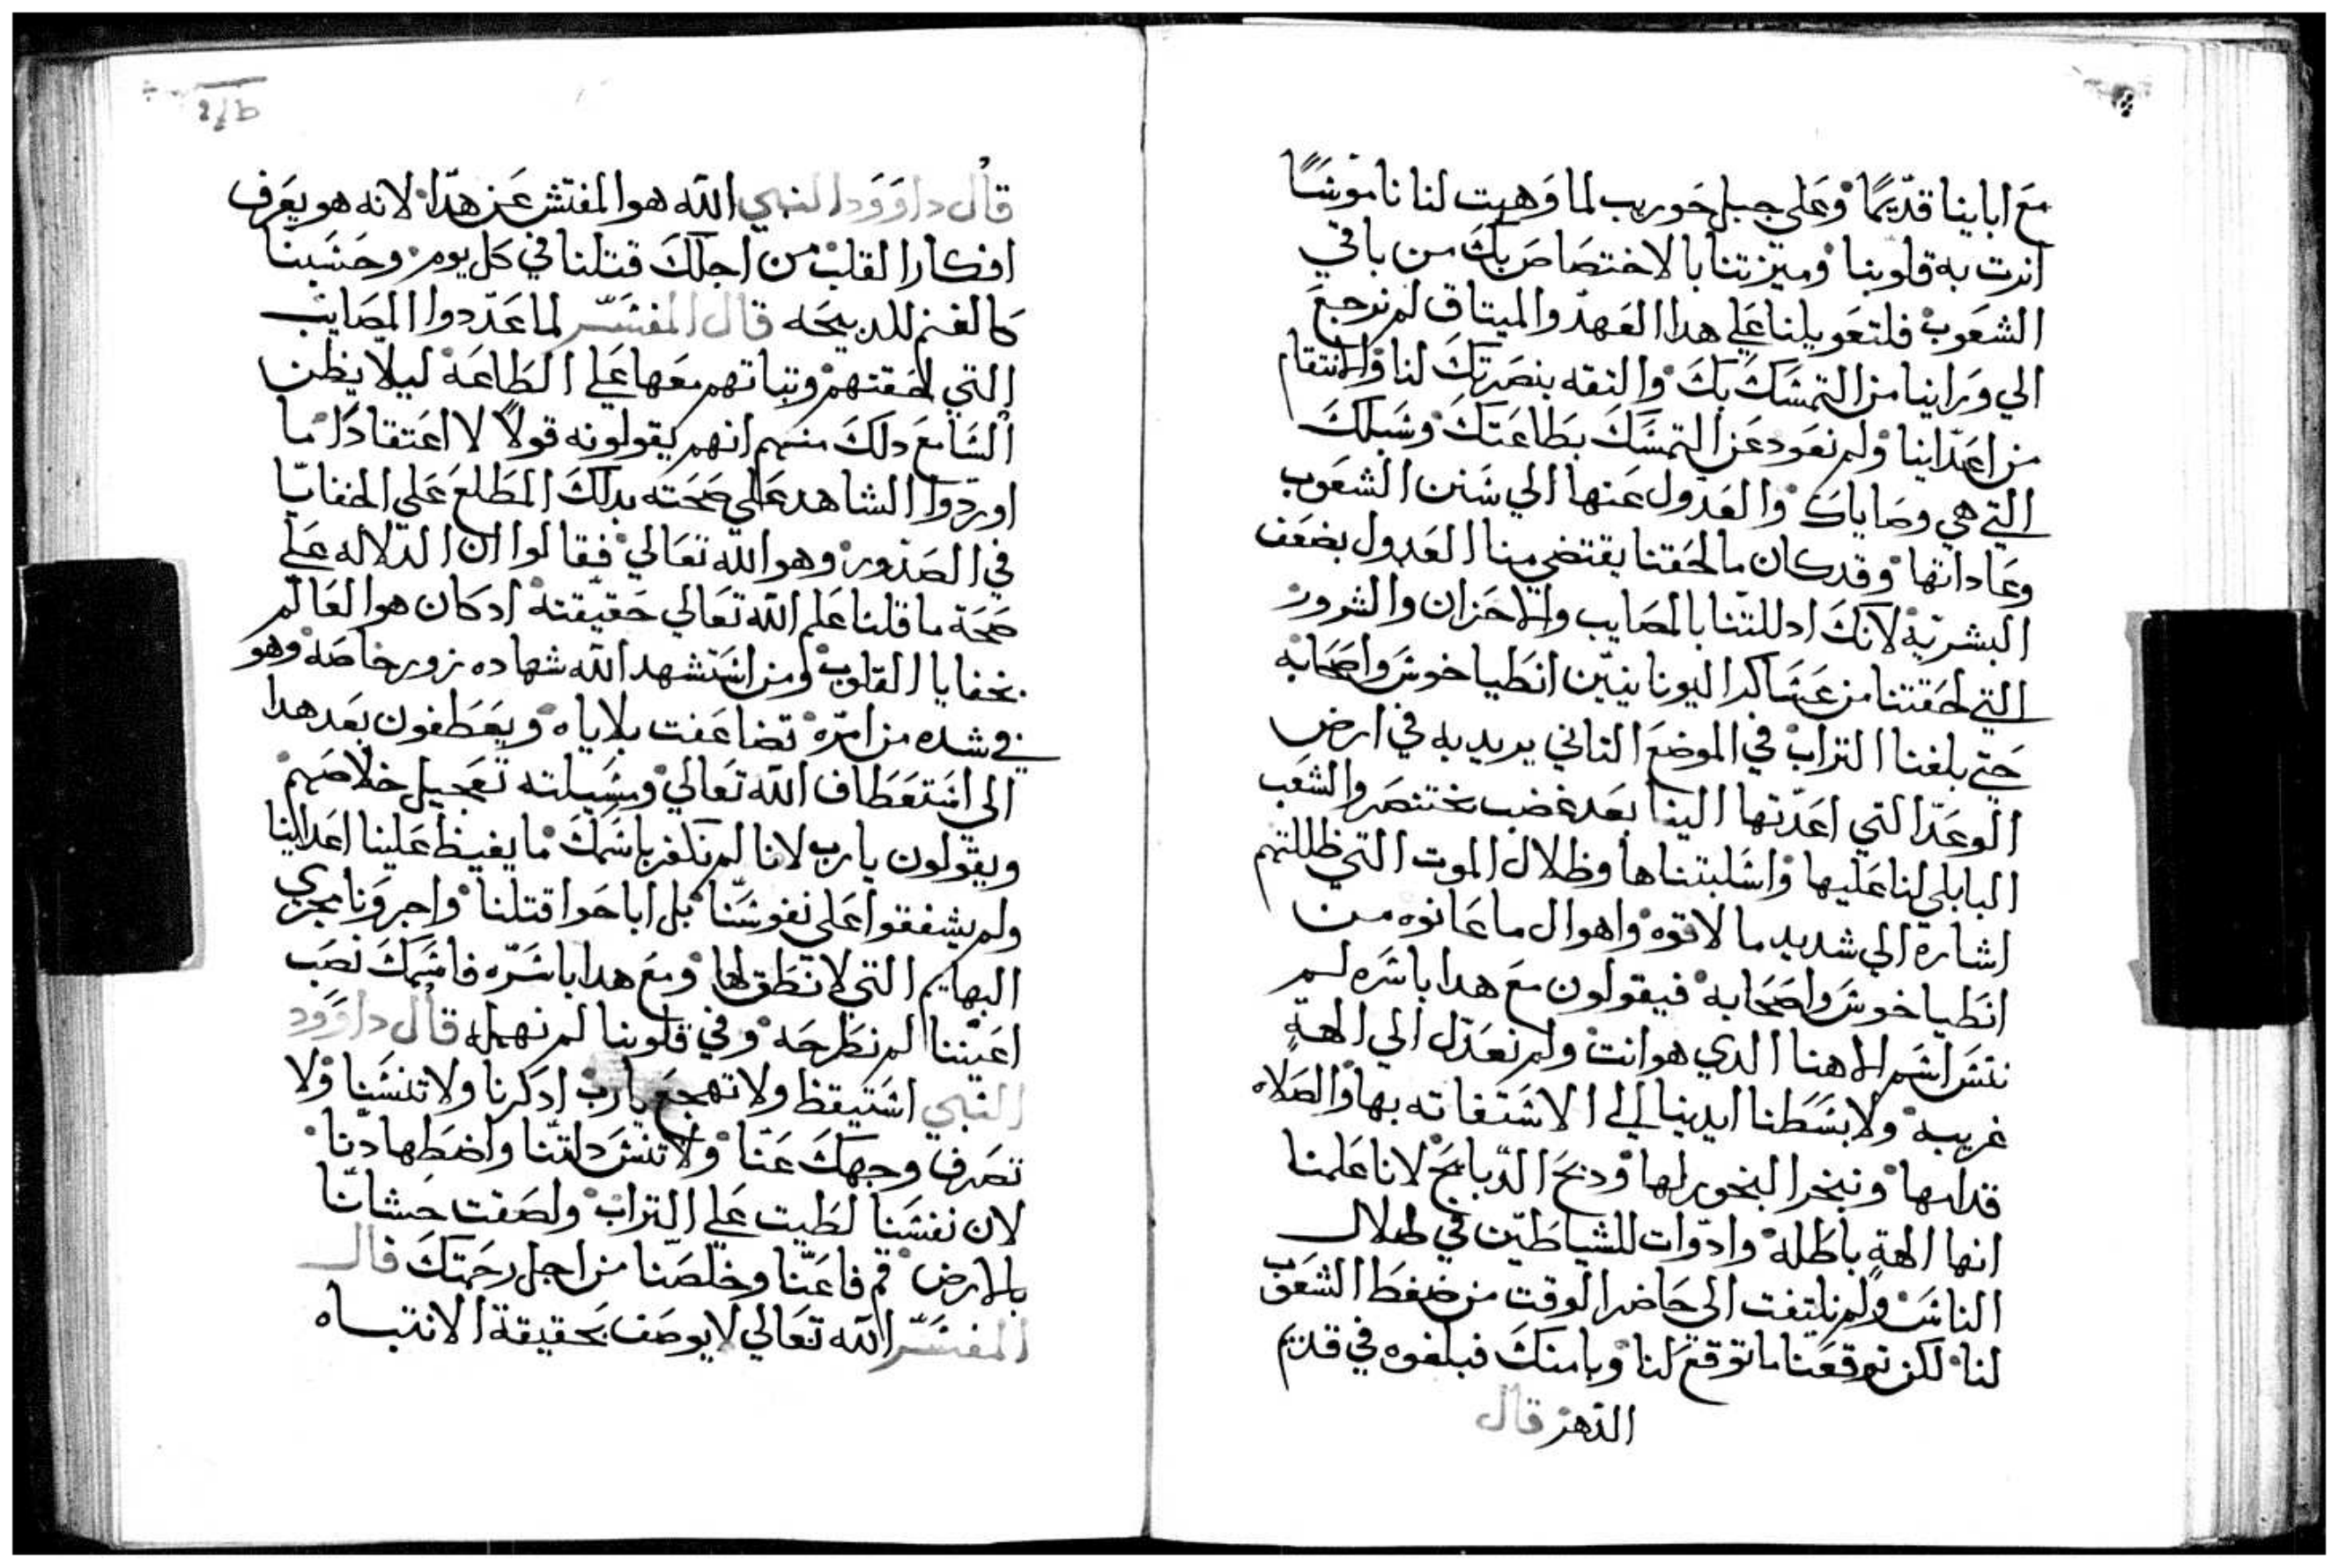 مع اباينا قديمًا وعلي جبل حوريب لما وهبت لنا ناموسًا
انرت به قلوبنا وميزتنا بالاختصاص بك من باقي
الشعوب فلتعويلنا علي هدا العهد والميتاق لم نرجع
الي وراينا من التمسك بك والتقه بنصرتك لنا والانتقام
من اعداينا ولم نعود عن التمسك بطاعتك وسبلك
التي هي وصاياك والعدول عنها الي سنن الشعوب
وعاداتها وقد كان ما لحقنا يقتضي منا العدول بضعف
البشرية لانك ادللتنا بالمصايب والاحزان والشرور
التي لحقتنا من عساكر اليونانيين انطياخوس واصحابه
حتي بلغنا التراب في الموضع التاني يريد به في ارض
الوعد التي اعدتها الينا بعد غضب بختنصر والشعب
البابلي لنا عليها واسلبتناها وظلال الموت التي ظللتهم
اشارة الي شديد ما لاقوه واهوال ما عانوه من
انطياخوس واصحابه فيقولون مع هدا باسره لم
ننس اسم الاهنا الدي هو انت ولم نعدل الي الهة
غريبه ولا بسطنا ايدينا الي الاستغاته بها والصلاه
قدامها ونبخر البخور لها ودبح الدبايح لانا علمنا
انها الهة باطله وادوات للشياطين في ضلال
الناس ولم نلتفت الي حاضر الوقت من ضغط الشعوب
لنا لكن توقعنا ما توقع لنا وبامنك فبلغوه في قديم
الدهر قال
قال داوود النبي الله هو المفتش عن هدا لانه هو يعرف
افكار القلب من اجلك قتلنا في كل يوم وحسبنا
كالغنم للدبيحه قال المفسر لما عددوا المصايب
التي لحقتهم وتباتهم معها علي الطاعة ليلا يظن
السامع دلك منهم انهم يقولونه قولًا لا اعتقادًا ما
اوردوا الشاهد علي صحته بدلك المطلع علي الخفايا
في الصدور وهو الله تعالي فقالوا ان الدلاله علي
صحة ما قلنا علم الله تعالي حقيقته اد كان هو العالم
بخفايا القلوب ومن استشهد الله شهاده زور خاصه وهو
في شده من امره تضاعفت بلاياه ويعطفون بعد هدا
الي استعطاف الله تعالي ومسيلته تعجيل خلاصهم
ويقولون يارب لانا لم نكفر باسمك ما يغيظ علينا اعداينا
ولم يشفقوا علي نفوسنا بل اباحوا قتلنا واجرونا مجري
البهايم التي لا نطق لها ومع هدا باسره فاسمك نصب
اعيننا لم نطرحه وفي قلوبنا لم نهمله قال داوود
النبي استيقظ ولا تهجع يارب ادكرنا ولا تنسنا ولا
تصرف وجهك عنا ولا تنس دلتنا واضطهادنا
لان نفسنا لطيت علي التراب ولصقت حشانا
بالارض قم فاعنا وخلصنا من اجل رحمتك قال
المفسر الله تعالي لا يوصف بحقيقة الانتباه